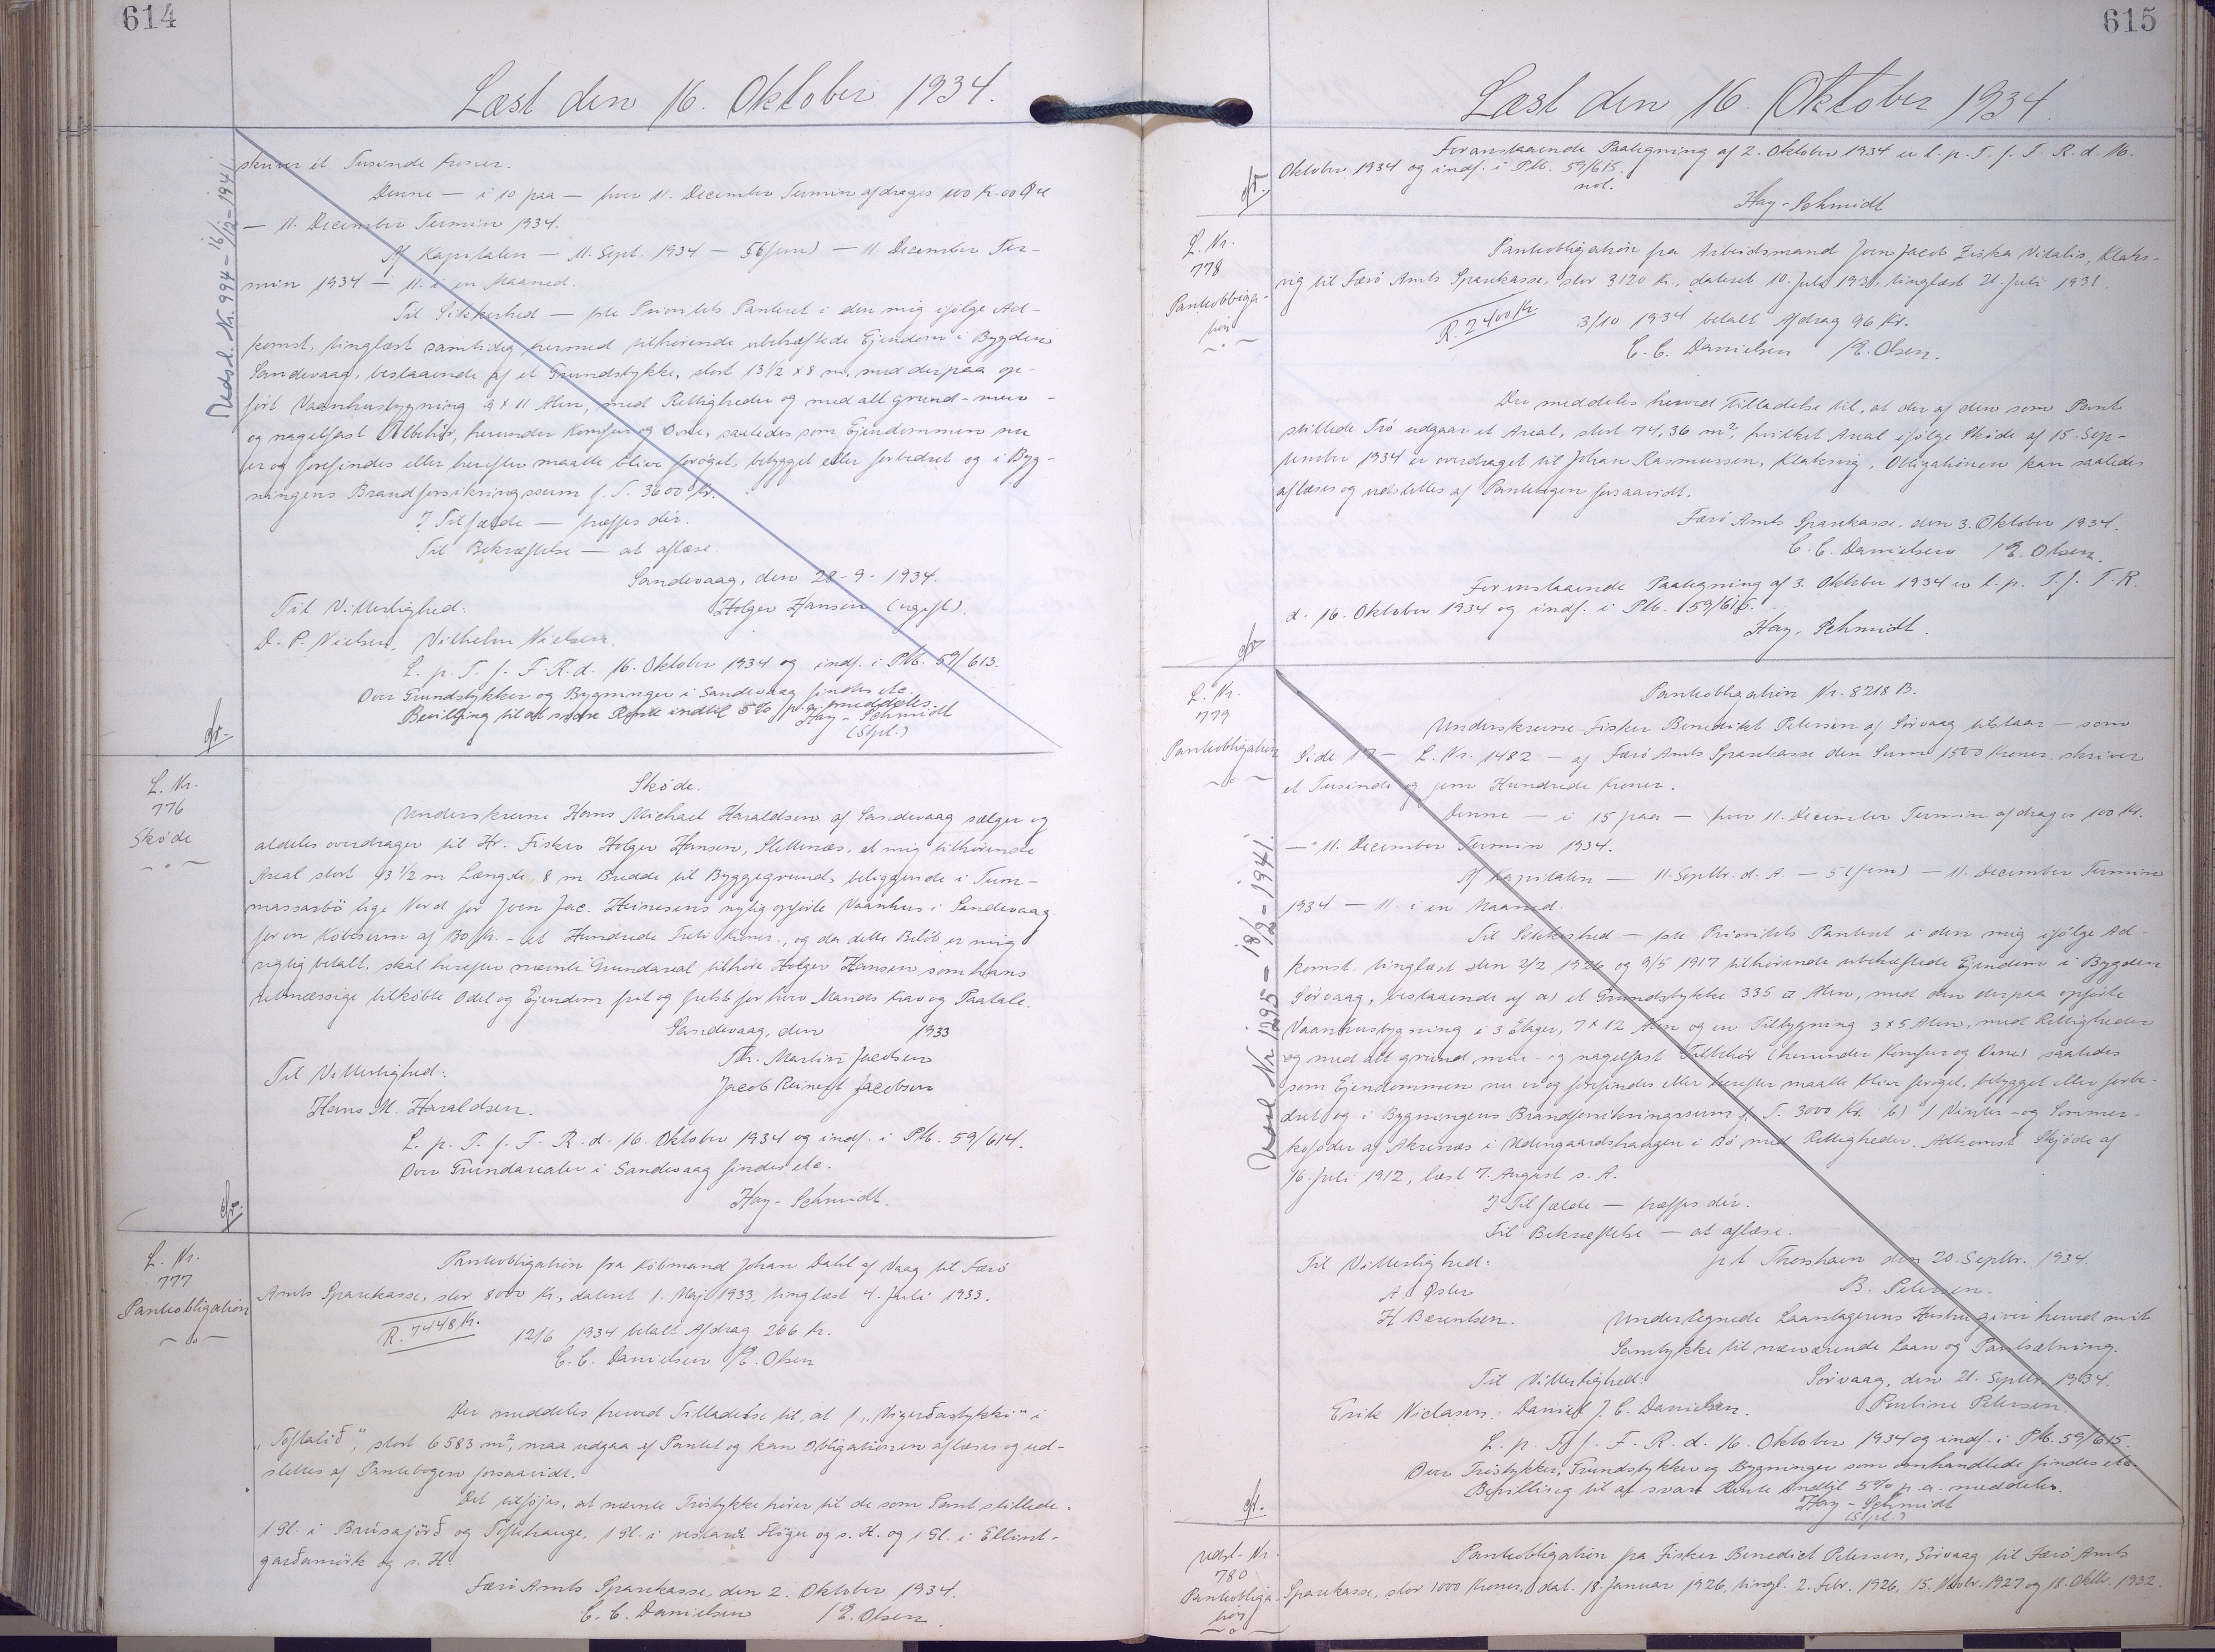 614
Læst den 16. Oktober 1934.
Udsl. Nr. 994 - 16/12 - 1941
skriver et Tusinde Kroner.
Denne — i 10 paa — hver 11. December Termin afdrages 100 Kr. 00 Øre
— 11. December Termin 1934.
Af Kapitalen — 11. Sept. 1934 — 5 (fem) — 11. December Ter-
min 1934 — 11. i en Maaned.
Til Sikkerhed — 1ste Prioritets Panteret i den mig ifølge Ad-
komst, tinglæst samtidig hermed tilhørende ubehæftede Ejendom i Bygden
Sandevaag, bestaaende af et Grundstykke, stort 13 1/2 x 8 m, med derpaa op-
ført Vaanhusbygning 9 x 11 Alen, med Rettigheder og med alt grund- mur-
og nagelfast Tilbehør, herunder Komfur og Ovne, saaledes som Ejendommen nu
er og forefindes eller herefter maatte blive forøget, bebygget eller forbedret og i Byg-
ningens Brandforsikringssum f. T. 3600 Kr.
I Tilfælde — træffes dér.
Til Bekræftelse — at aflæse.
Sandevaag, den 28-9-1934.
Til Vitterlighed: Holger Hansen (ugift).
D. P. Nielsen, Vilhelm Nielsen
L. p. T. f. F. R. d. 16. Oktober 1934 og indf. i Ptb. 59/613.
Over Grundstykker og Bygninger i Sandevaag findes etc.
Bevilling til at svare Rente indtil 5% p.a. meddeles.
Hay-Schmidt
L. Nr.
776
Skøde
Skøde.
Underskrevne Hans Michael Haraldsen af Sandevaag sælger og
aldeles overdrager til Hr. Fisker Holger Hansen, Slettenæs, et mig tilhørende
Areal stort 13 1/2 m Længde, 8 m Bredde til Byggegrund, beliggende i Tum-
massarbø lige Nord for Joen Jac. Heinesens nylig opførte Vaanhus i Sandevaag
for en Købesum af 130 Kr. - et Hundrede Treti Kroner., og da dette Beløb er mig
rigtig betalt, skal herefter nævnte Grundareal tilhøre Holger Hansen som hans
retmæssige tilkøbte Odel og Ejendom frit og frelst for hver Mands Krav og Paatale.
Sandevaag, den 1933
Til Vitterlighed: Th. Martin Jacobsen
Jacob Reinert Jacobsen
Hans M. Haraldsen.
L. p. T. f. F. R. d. 16. Oktober 1934 og indf. i Ptb. 59/614.
Over Grundarealer i Sandevaag findes etc.
Hay-Schmidt.
L. Nr.
777
Panteobligation
Panteobligation fra Købmand Johan Dahl af Vaag til Færø
Amts Sparekasse, stor 8000 Kr., dateret 1. Maj 1933, tinglæst 4. Juli 1933.
R. 7448 Kr. 12/6 1934 betalt Afdrag 266 Kr.
C. C. Danielsen /E. Olsen
Der meddeles herved Tilladelse til, at 1 „Vigerðastykki" i
„Toftalið", stort 6583 m², maa udgaa af Pantet og kan Obligationen aflæses og ud-
slettes af Pantebogen forsaavidt.
Det tilføjes, at nævnte Trøstykke hører til de som Pant stillede
1 Gl. i Brúsajørð og Toftehauge, 1 Gl. i og s. H. og 1 Gl. i
og s. H.
Færø Amts Sparekasse, den 2. Oktober 1934.
C. C. Danielsen /E. Olsen.
615
Læst den 16. Oktober 1934.
Foranstaaende Paategning af 2. Oktober 1934 er l. p. T. f. F. R. d. 16.
Oktober 1934 og indf. i Ptb. 59/615.
not.
Hay-Schmidt
L. Nr.
778
Panteobliga-
tion
Panteobligation fra Arbeidsmand Joen Jacob Ziska Vitalis, Klaks-
vig til Færø Amts Sparekasse, stor 3120 Kr., dateret 10. Juli 1931, tinglæst 21. Juli 1931.
R. 2400 Kr 3/10 1934 betalt Afdrag 96 Kr.
C. C. Danielsen /E. Olsen.
Der meddeles herved Tilladelse til, at der af den som Pant
stillede Trø udgaar et Areal, stort 74,36 m², hvilket Areal ifølge Skøde af 15. Sep-
tember 1934 er overdraget til Johan Rasmussen, Klaksvig. Obligationen kan saaledes
aflæses og udslettes af Pantebogen forsaavidt.
Færø Amts Sparekasse, den 3. Oktober 1934.
C. C. Danielsen /E. Olsen.
Foranstaaende Paategning af 3. Oktober 1934 er l. p. T. f. F. R.
d. 16. Oktober 1934 og indf. i Ptb. 59/615.
Hay-Schmidt.
L. Nr.
779
Panteobligation
Udsl. Nr. 1295 - 18/12 - 1941.
Panteobligation Nr. 8218 B.
Underskrevne Fisker Benedikt Petersen af Sørvaag tilstaar — som
Side 17 — L. Nr. 1482 — af Færø Amts Sparekasse den Sum 1500 Kroner, skriver
et Tusinde og fem Hundrede Kroner.
Denne — i 15 paa — hver 11. December Termin afdrages 100 Kr.
— 11. December Termin 1934.
Af Kapitalen — 11. Septbr. d. A. — 5 (fem) — 11. December Termin
1934 — 11. i en Maaned.
Til Sikkerhed — 1ste Prioritets Panteret i den mig ifølge Ad-
komst, tinglæst den 2/2 1926 og 9/5 1917 tilhørende ubehæftede Ejendom i Bygden
Sørvaag, bestaaende af a) et Grundstykke 335 □ Alen, med den derpaa opførte
Vaanhusbygning i 3 Etager, 7 x 12 Alen og en Tilbygning 3 x 5 Alen, med Rettigheder
og med alt grund mur- og nagelfast Tilbehør (herunder Komfur og Ovne) saaledes
som Ejendommen nu er og forefindes eller herefter maatte blive forøget, bebygget eller forbe-
dret og i Bygningens Brandforsikringssum f. T. 3000 Kr. b) 1 Vinter- og Sommer-
kofoder af Akrenæs i Udengaardshaugen i Bø, med Rettigheder. Adkomst Skjøde af
16. Juli 1912, læst 7. August s. A.
I Tilfælde — træffes dér.
Til Bekræftelse — at aflæse.
Til Vitterlighed: p.t. Thorshavn den 20. Septbr. 1934.
A. Øster B. Petersen.
H Bærentsen. Undertegnede Laantagerens Hustru giver herved mit
Samtykke til nærværende Laan og Pantsætning.
Til Vitterlighed: Sørvaag, den 21. Septbr. 1934.
Erik Niclasen. Daniel J. C. Danielsen. Pauline Petersen
L. p. T. f. F. R. d. 16. Oktober 1934 og indf. i Ptb. 59/615.
Over Trøstykker, Grundstykker og Bygninger som omhandlede findes etc.
Bevilling til at svare Rente indtil 5% p.a. meddeles.
Hay-Schmidt
Udsl. Nr.
780
Panteobliga-
tion
Panteobligation fra Fisker Benedict Petersen, Sørvaag til Færø Amts
Sparekasse, stor 1000 Kroner, dat. 18. Januar 1926, tingl. 2. Febr. 1926, 15. Novbr. 1927 og 18. Oktbr. 1932.